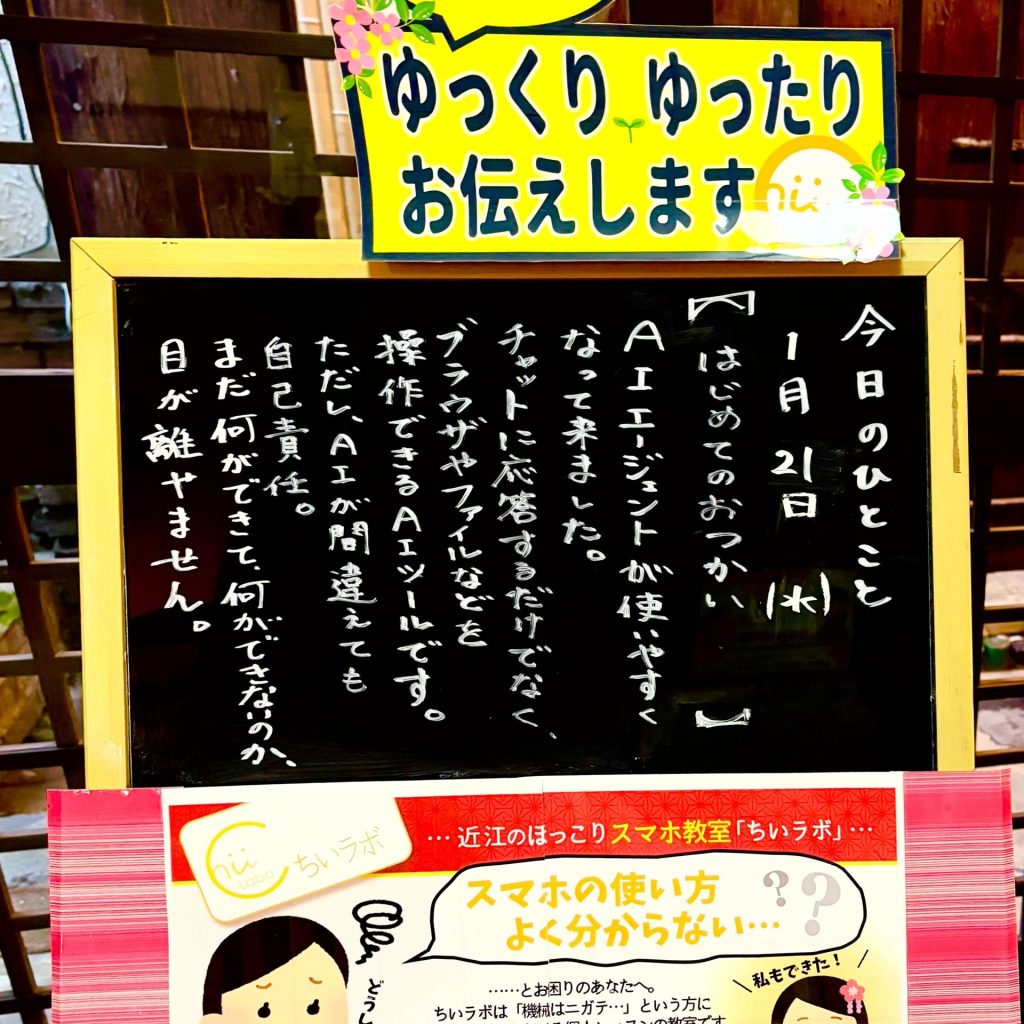 ゆっくり ゆったり
お伝えします
今日のひとこと
1月21日(水)
【はじめてのおつかい】
AIエージェントが使いやすく
なって来ました。
チャットに応答するだけでなく、
ブラウザやファイルなどを
操作できるAIツールです。
ただし、AIが間違えても
自己責任。
まだ何ができて、何ができないのか、
目が離やません。
Chii
Labo
ちいラボ
…近江のほっこりスマホ教室「ちいラボ」…
スマホの使い方
よく分からない…??
どうし
私もできた！
……とお困りのあなたへ。
ちいラボは「機械はニガテ…」という方に